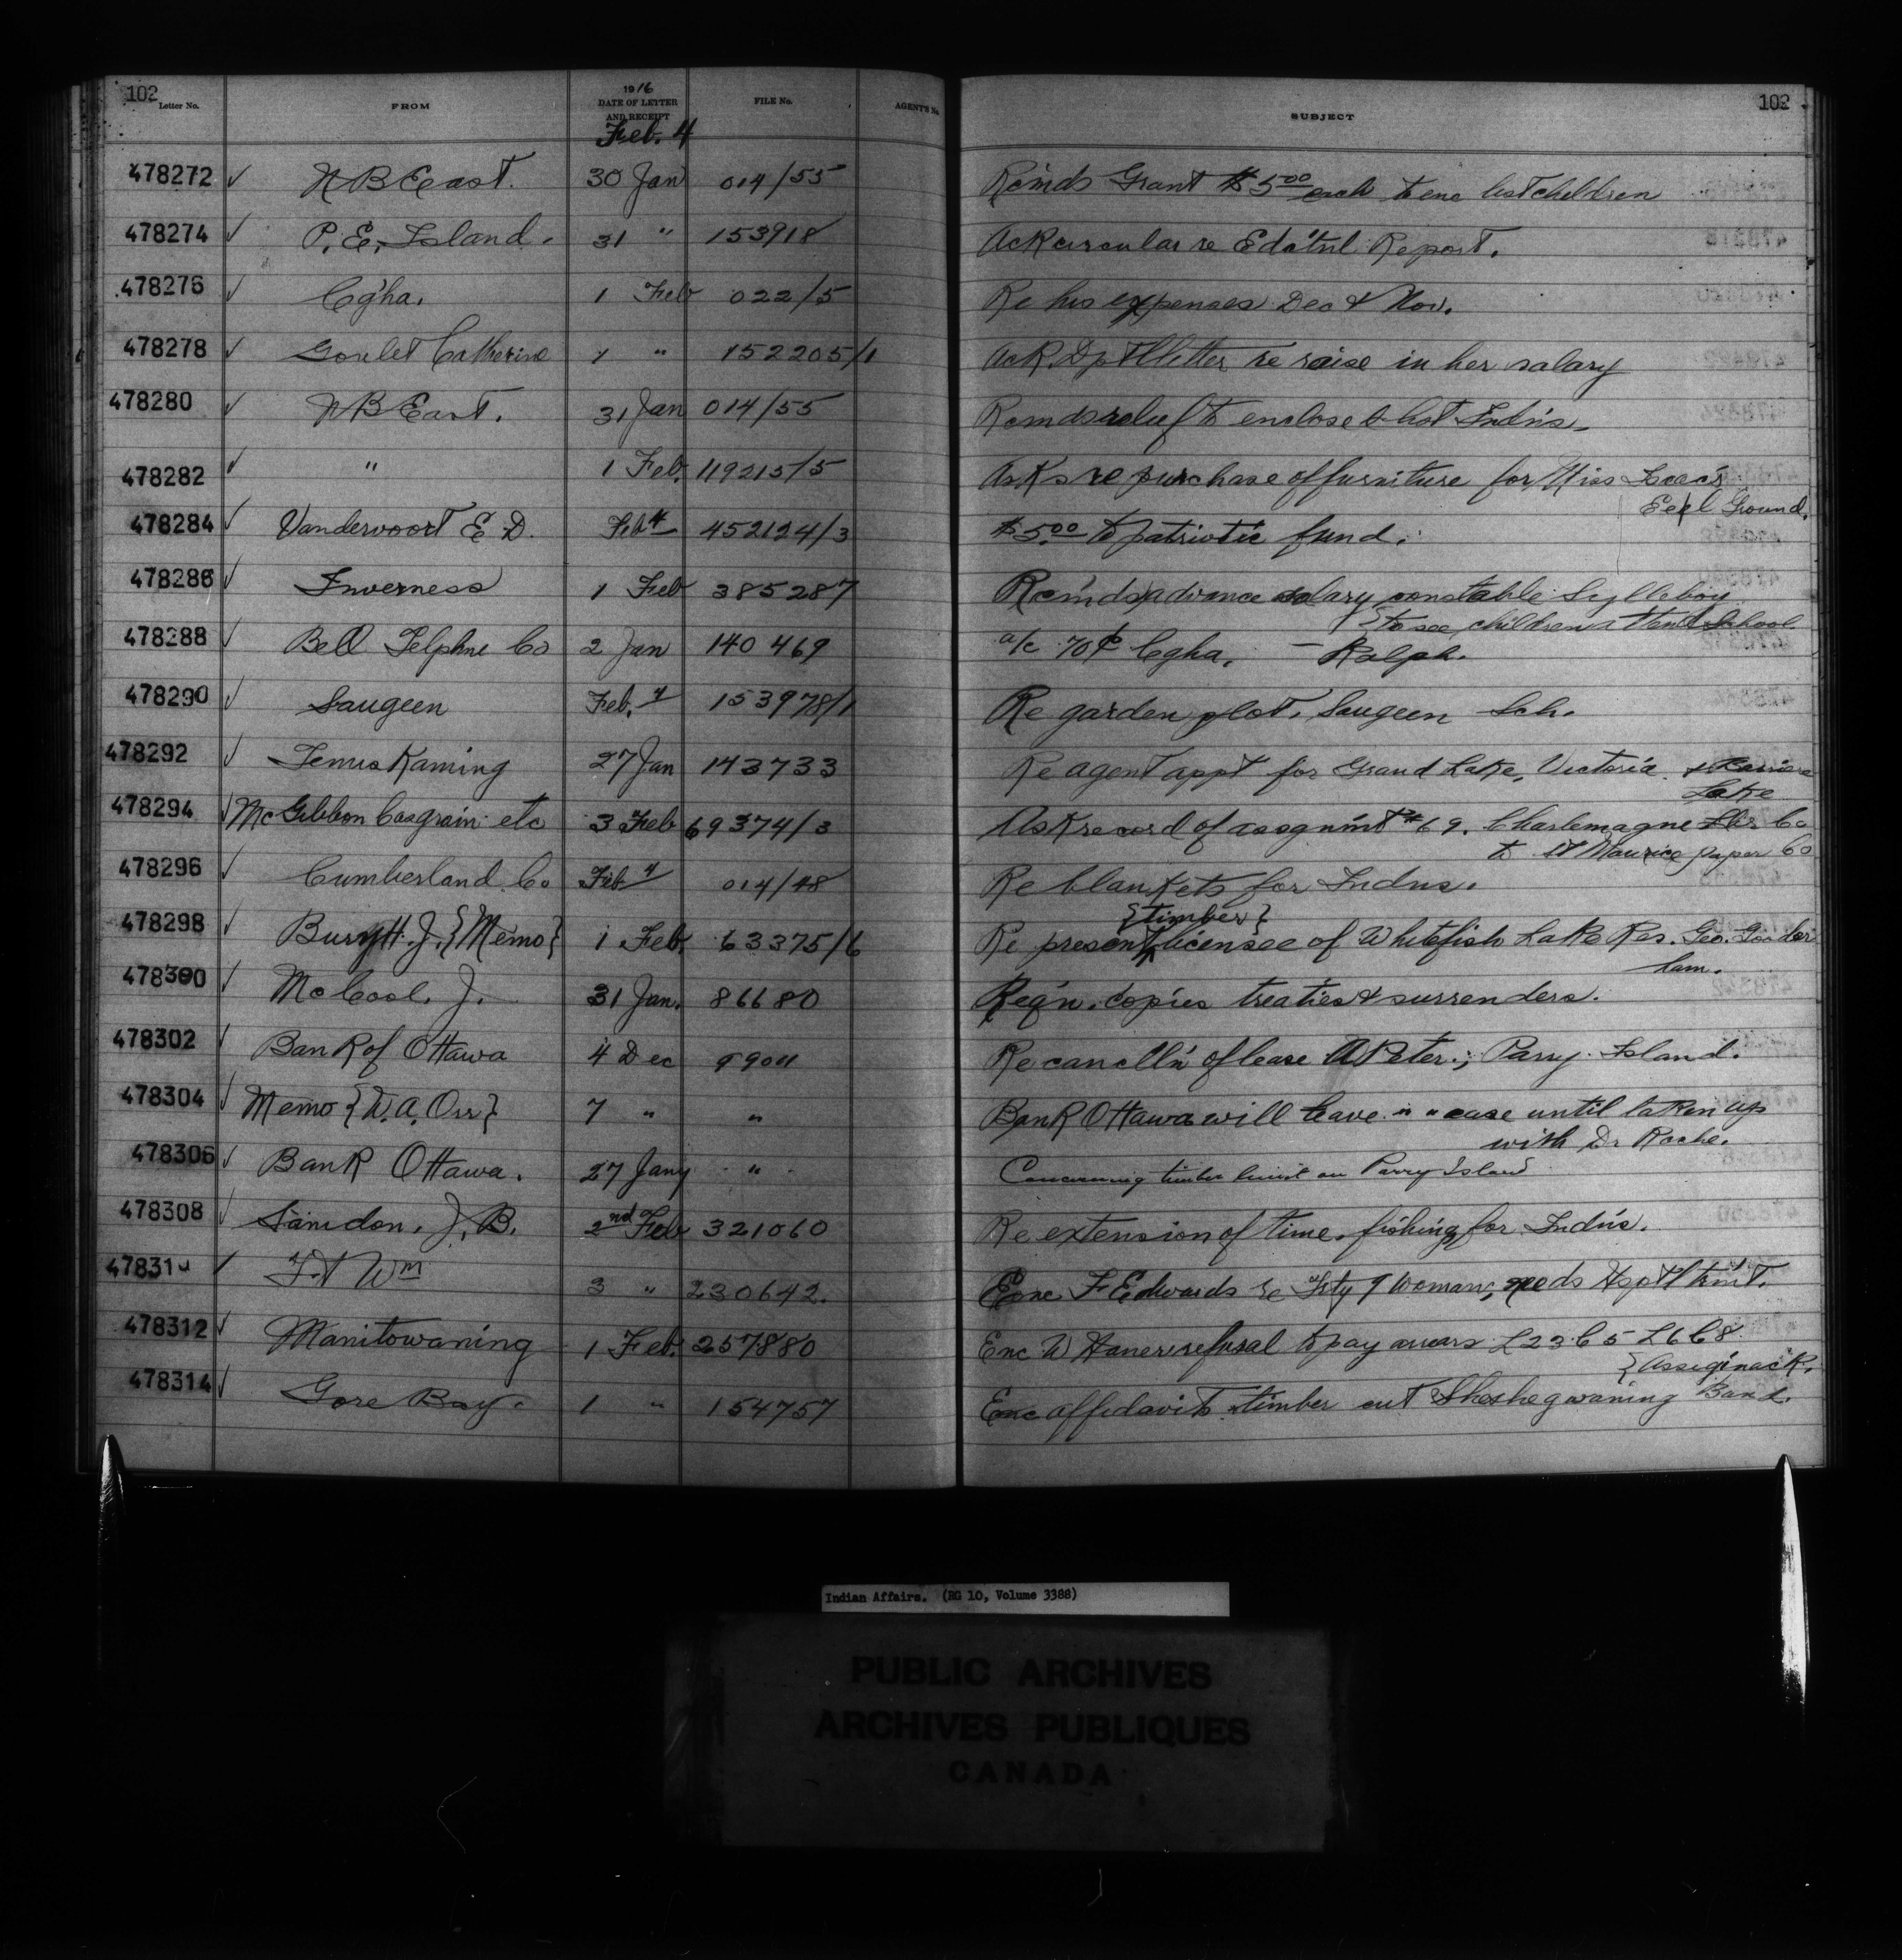 102
102
Letter No.
FROM
1916
DATE OF LETTER
AND RECEIPT
FILE No.
AGENT'S No.
SUBJECT
Feb. 4
478272 ✓ N B East. 30 Jan 014/55 Rcm'ds Grant $5.00 each to enc list children
478274 ✓ P. E. Island. 31 " 153918 Ack circular re Edc'tnl Report.
478276 ✓ C'gha. 1 Feb 022/5 Re his expenses Dec & Nov.
478278 ✓ Goulet Catherine 1 " 152205/1 Ack. Dp'tl letter re raise in her salary
478280 ✓ N B East. 31 Jan 014/55 Rcmds relief to enclosed list Indn's.
478282 ✓ " 1 Feb. 119215/5 Asks re purchase of furniture for Miss
Eeel Ground.
478284 ✓ Vandervoort E D. Feb 4 452124/3 $5.00 to patriotic fund.
478286 ✓ Inverness 1 Feb 385287 Rcm'ds advance salary constable Sylleboy
{to see children attend school
478288 ✓ Bell Telphne Co 2 Jan 140 469 a/c 70¢ Cgha. — Ralph.
478290 ✓ Saugeen Feb. 4 153978/1 Re garden plot, Saugeen Sch.
478292 ✓ Temiskaming 27 Jan 143733 Re agent appt for Grand Lake, Victoria. & Barriere
Lake
478294 ✓ McGibbon Casgrain etc 3 Feb 69374/3 Ask record of assgnm't #69. Charlemagne Co
to St Maurice paper Co
478296 ✓ Cumberland Co Feb 4 014/48 Re blankets for Indns.
{timber}
478298 ✓ Bury H. J. {Memo} 1 Feb 63375/6 Re present licensee of Whitefish Lake Res. Geo. Gooder
ham.
478300 ✓ McCool. J. 31 Jan. 86680 Req'n. copies treaties & surrenders.
478302 ✓ Bank of Ottawa 4 Dec 9904 Re cancll'n of lease A Peter.; Parry Island.
478304 ✓ Memo {W. A. Orr} 7 " " Bank Ottawa will leave " " case until taken up
with Dr Roche.
478306 ✓ Bank Ottawa. 27 Jany " Concerning timber limit on Parry Island
478308 ✓ J. B. 2nd Feb 321060 Re extension of time, fishing for Indn's.
478310 ✓ Ft Wm 3 " 230642. Enc F Edwards re woman, needs Hspt'l trm't.
478312 ✓ Manitowaning 1 Feb. 257880 Enc W refusal to pay arrears L23 C5 L6 C8
{Assiginack.
478314 ✓ Gore Bay. 1 " 154757 Enc affidavits timber cut Sheshegwaning Band.
Indian Affairs. (RG 10, Volume 3388)
PUBLIC ARCHIVES
ARCHIVES PUBLIQUES
CANADA